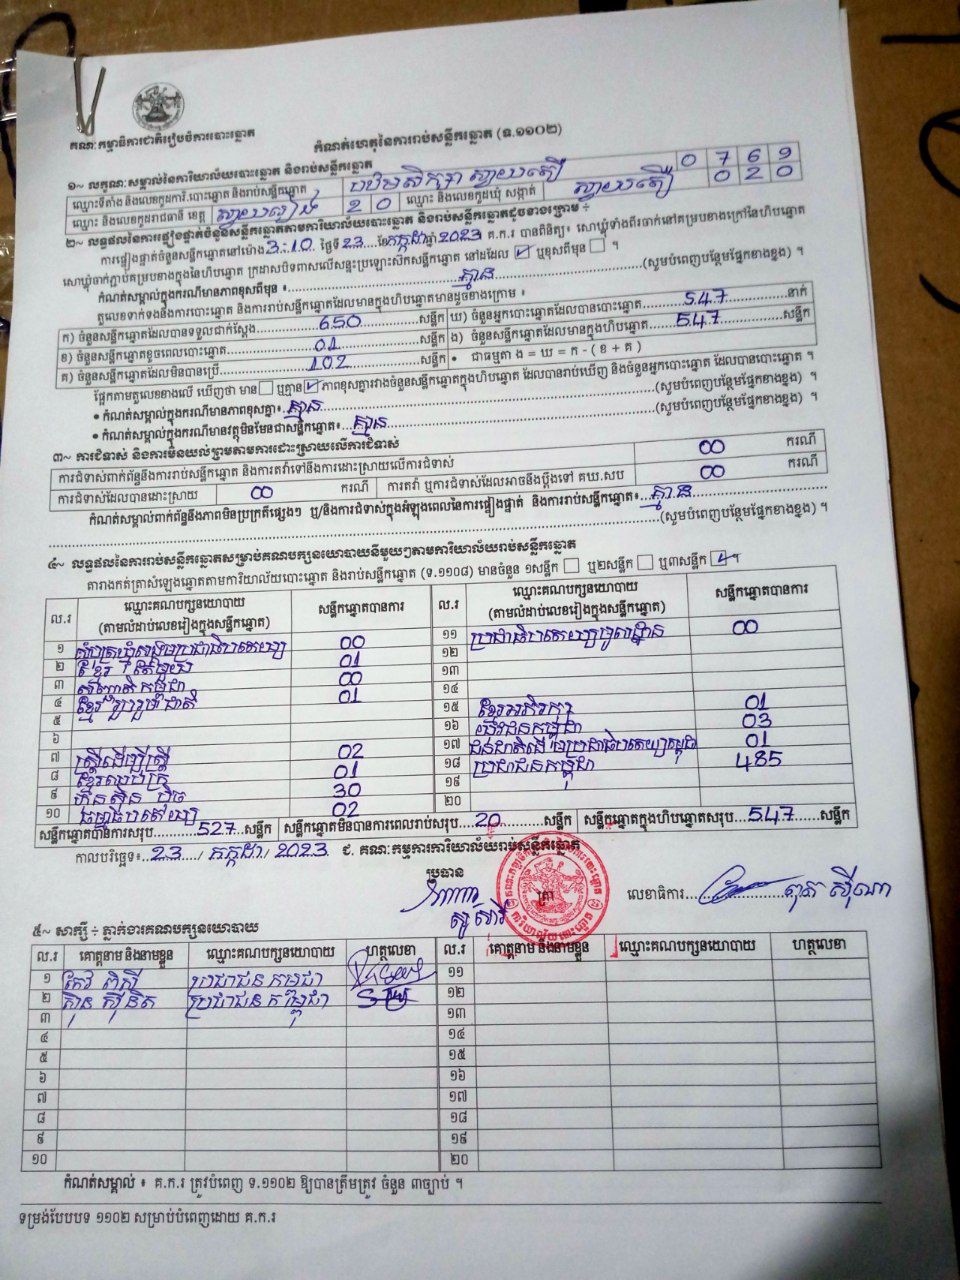 គណៈកម្មាធិការជាតិរៀបចំការបោះឆ្នោត
កំណត់ហេតុនៃការរាប់សន្លឹកឆ្នោត (ទ.១១០២)
១~ លក្ខណៈសម្គាល់នៃការិយាល័យបោះឆ្នោត និងរាប់សន្លឹកឆ្នោត
ឈ្មោះទីតាំង និងលេខកូដការិ.បោះឆ្នោត និងរាប់សន្លឹកឆ្នោត បឋមសិក្សា ស្វាយតឿ 0 7 6 9
ឈ្មោះ និងលេខកូដរាជធានី ខេត្ត ស្វាយរៀង 2 0 ឈ្មោះ និងលេខកូដឃុំ សង្កាត់ ស្វាយតឿ 0 2 0
២~ លទ្ធផលនៃការផ្ទៀងផ្ទាត់ចំនួនសន្លឹកឆ្នោតតាមការិយាល័យបោះឆ្នោត និងរាប់សន្លឹកឆ្នោតដូចខាងក្រោម ÷
ការផ្ទៀងផ្ទាត់ចំនួនសន្លឹកឆ្នោតនៅម៉ោង 3:10 ថ្ងៃទី 23 ខែ កក្កដា ឆ្នាំ 2023 គ.ក.រ បានពិនិត្យ៖ សោឃ្លុំទាំងពីរចាក់នៅគម្របខាងក្រៅនៃហិបឆ្នោត
សោឃ្លុំចាក់ភ្ជាប់គម្របខាងក្នុងនៃហិបឆ្នោត ក្រដាសបិទពាសលើសន្ទះប្រឡោះស៊កសន្លឹកឆ្នោត នៅដដែល ✓ ឬខុសពីមុន ។
កំណត់សម្គាល់ក្នុងករណីមានភាពខុសពីមុន ៖ គ្មាន (សូមបំពេញបន្ថែមផ្នែកខាងខ្នង) ។
តួលេខទាក់ទងនឹងការបោះឆ្នោត និងការរាប់សន្លឹកឆ្នោតដែលមានក្នុងហិបឆ្នោតមានដូចខាងក្រោម ៖
ក) ចំនួនសន្លឹកឆ្នោតដែលបានទទួលជាក់ស្តែង 650 សន្លឹក ឃ) ចំនួនអ្នកបោះឆ្នោតដែលបានបោះឆ្នោត 547 នាក់
ខ) ចំនួនសន្លឹកឆ្នោតខូចពេលបោះឆ្នោត 01 សន្លឹក ង) ចំនួនសន្លឹកឆ្នោតដែលមានក្នុងហិបឆ្នោត 547 សន្លឹក
គ) ចំនួនសន្លឹកឆ្នោតដែលមិនបានប្រើ 102 សន្លឹក • ជាធម្មតា ង = ឃ = ក - ( ខ + គ )
ផ្អែកតាមតួលេខខាងលើ ឃើញថា មាន ឬគ្មាន ✓ ភាពខុសគ្នារវាងចំនួនសន្លឹកឆ្នោតក្នុងហិបឆ្នោត ដែលបានរាប់ឃើញ និងចំនួនអ្នកបោះឆ្នោត ដែលបានបោះឆ្នោត ។
• កំណត់សម្គាល់ក្នុងករណីមានភាពខុសគ្នា៖ គ្មាន (សូមបំពេញបន្ថែមផ្នែកខាងខ្នង) ។
• កំណត់សម្គាល់ក្នុងករណីមានវត្ថុមិនមែនជាសន្លឹកឆ្នោត៖ គ្មាន (សូមបំពេញបន្ថែមផ្នែកខាងខ្នង) ។
៣~ ការជំទាស់ និងការមិនយល់ព្រមតាមការដោះស្រាយលើការជំទាស់
ការជំទាស់ពាក់ព័ន្ធនឹងការរាប់សន្លឹកឆ្នោត និងការតវ៉ាទៅនឹងការដោះស្រាយលើការជំទាស់ 00 ករណី
ការជំទាស់ដែលបានដោះស្រាយ 00 ករណី ការតវ៉ា ឬការជំទាស់ដែលអាចនឹងប្តឹងទៅ គឃ.សប 00 ករណី
កំណត់សម្គាល់ពាក់ព័ន្ធនឹងភាពមិនប្រក្រតីផ្សេងៗ ឬ/និងការជំទាស់ក្នុងអំឡុងពេលនៃការផ្ទៀងផ្ទាត់ និងការរាប់សន្លឹកឆ្នោត៖ គ្មាន
(សូមបំពេញបន្ថែមផ្នែកខាងខ្នង) ។
៤~ លទ្ធផលនៃការរាប់សន្លឹកឆ្នោតសម្រាប់គណបក្សនយោបាយនីមួយៗតាមការិយាល័យរាប់សន្លឹកឆ្នោត
តារាងកត់ត្រាសំឡេងឆ្នោតតាមការិយាល័យបោះឆ្នោត និងរាប់សន្លឹកឆ្នោត (ទ.១១០៨) មានចំនួន ១សន្លឹក ឬ២សន្លឹក ឬ៣សន្លឹក ✓ ។
ល.រ ឈ្មោះគណបក្សនយោបាយ (តាមលំដាប់លេខរៀងក្នុងសន្លឹកឆ្នោត) សន្លឹកឆ្នោតបានការ ល.រ ឈ្មោះគណបក្សនយោបាយ (តាមលំដាប់លេខរៀងក្នុងសន្លឹកឆ្នោត) សន្លឹកឆ្នោតបានការ
១ សំបុកឃ្មុំសង្គមប្រជាធិបតេយ្យ 00 ១១ ប្រជាធិបតេយ្យមូលដ្ឋាន 00
២ ខ្មែរតែមួយ 01 ១២
៣ សញ្ជាតិកម្ពុជា 00 ១៣
៤ ខ្មែររួបរួមជាតិ 01 ១៤
៥ ១៥ ខ្មែរអភិរក្ស 01
៦ ១៦ យុវជនកម្ពុជា 03
៧ ស្ត្រីដើម្បីស្ត្រី 02 ១៧ ជនជាតិដើមប្រជាធិបតេយ្យកម្ពុជា 01
៨ ខ្មែរឈប់ក្រ 01 ១៨ ប្រជាជនកម្ពុជា 485
៩ ហ៊្វុនស៊ិនប៉ិច 30 ១៩
១០ ធម្មាធិបតេយ្យ 02 ២០
សន្លឹកឆ្នោតបានការសរុប 527 សន្លឹក សន្លឹកឆ្នោតមិនបានការពេលរាប់សរុប 20 សន្លឹក សន្លឹកឆ្នោតក្នុងហិបឆ្នោតសរុប 547 សន្លឹក
កាលបរិច្ឆេទ៖ 23 / កក្កដា / 2023 ជ. គណៈកម្មការការិយាល័យរាប់សន្លឹកឆ្នោត
ប្រធាន ត្រា លេខាធិការ
៥~ សាក្សី ÷ ភ្នាក់ងារគណបក្សនយោបាយ
ល.រ គោត្តនាម និងនាមខ្លួន ឈ្មោះគណបក្សនយោបាយ ហត្ថលេខា ល.រ គោត្តនាម និងនាមខ្លួន ឈ្មោះគណបក្សនយោបាយ ហត្ថលេខា
១ កែវ ពិសី ប្រជាជនកម្ពុជា ១១
២ ប្រជាជនកម្ពុជា ១២
៣ ១៣
៤ ១៤
៥ ១៥
៦ ១៦
៧ ១៧
៨ ១៨
៩ ១៩
១០ ២០
កំណត់សម្គាល់ ៖ គ.ក.រ ត្រូវបំពេញ ទ.១១០២ ឱ្យបានត្រឹមត្រូវ ចំនួន ៣ច្បាប់ ។
ទម្រង់បែបបទ ១១០២ សម្រាប់បំពេញដោយ គ.ក.រ